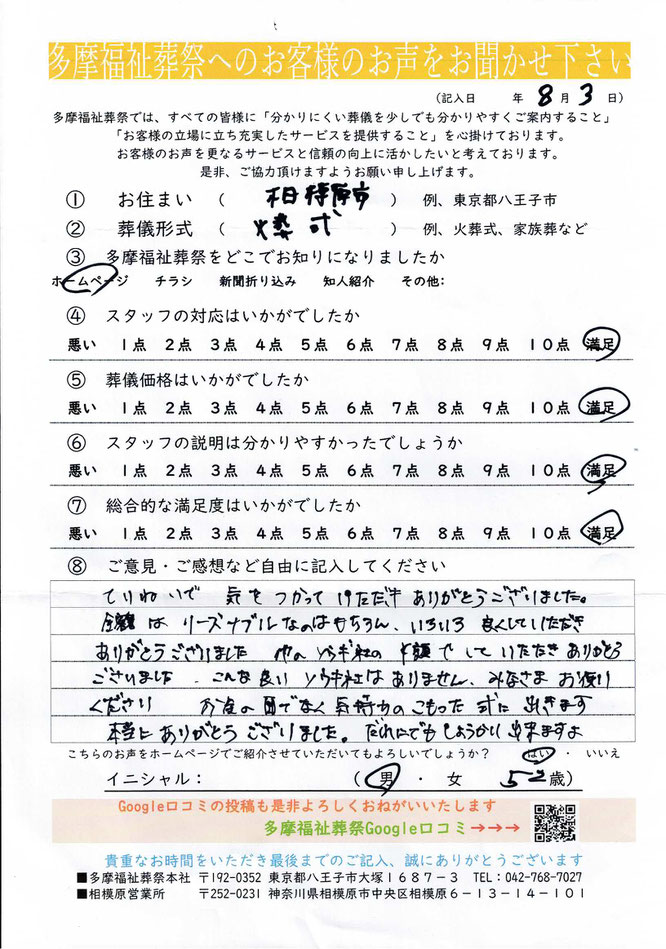 多摩福祉葬祭へのお客様のお声をお聞かせ下さい
(記入日 年 8 月 3 日)
多摩福祉葬祭では、すべての皆様に「分かりにくい葬儀を少しでも分かりやすくご案内すること」
「お客様の立場に立ち充実したサービスを提供すること」を心掛けております。
お客様のお声を更なるサービスと信頼の向上に活かしたいと考えております。
是非、ご協力頂けますようお願い申し上げます。
① お住まい ( 相模原市 ) 例、東京都八王子市
② 葬儀形式 ( 火葬式 ) 例、火葬式、家族葬など
③ 多摩福祉葬祭をどこでお知りになりましたか
ホームページ チラシ 新聞折り込み 知人紹介 その他:
④ スタッフの対応はいかがでしたか
悪い 1点 2点 3点 4点 5点 6点 7点 8点 9点 10点 満足
⑤ 葬儀価格はいかがでしたか
悪い 1点 2点 3点 4点 5点 6点 7点 8点 9点 10点 満足
⑥ スタッフの説明は分かりやすかったでしょうか
悪い 1点 2点 3点 4点 5点 6点 7点 8点 9点 10点 満足
⑦ 総合的な満足度はいかがでしたか
悪い 1点 2点 3点 4点 5点 6点 7点 8点 9点 10点 満足
⑧ ご意見・ご感想など自由に記入してください
ていねいで 気をつかって いただき ありがとうございました。
金額は リーズナブルなのはもちろん、いろいろ 良くしていただき
ありがとうございました 他の ソウギ社の 半額で して いただき ありがとう
ございました. こんな良い ソウギ社は ありません、みなさま お使い
ください お金の面でなく 気持ちの こもった 式に 出きます
本当に ありがとう ございました。だれにでも しょうかい 出来ますよ
こちらのお声をホームページでご紹介させていただいてもよろしいでしょうか? はい ・ いいえ
イニシャル: ( 男 ・ 女 52歳)
Google口コミの投稿も是非よろしくおねがいいたします
多摩福祉葬祭Google口コミ→→→
貴重なお時間をいただき最後までのご記入、誠にありがとうございます
■多摩福祉葬祭本社 〒192-0352 東京都八王子市大塚1687-3 TEL:042-768-7027
■相模原営業所 〒252-0231 神奈川県相模原市中央区相模原6-13-14-101